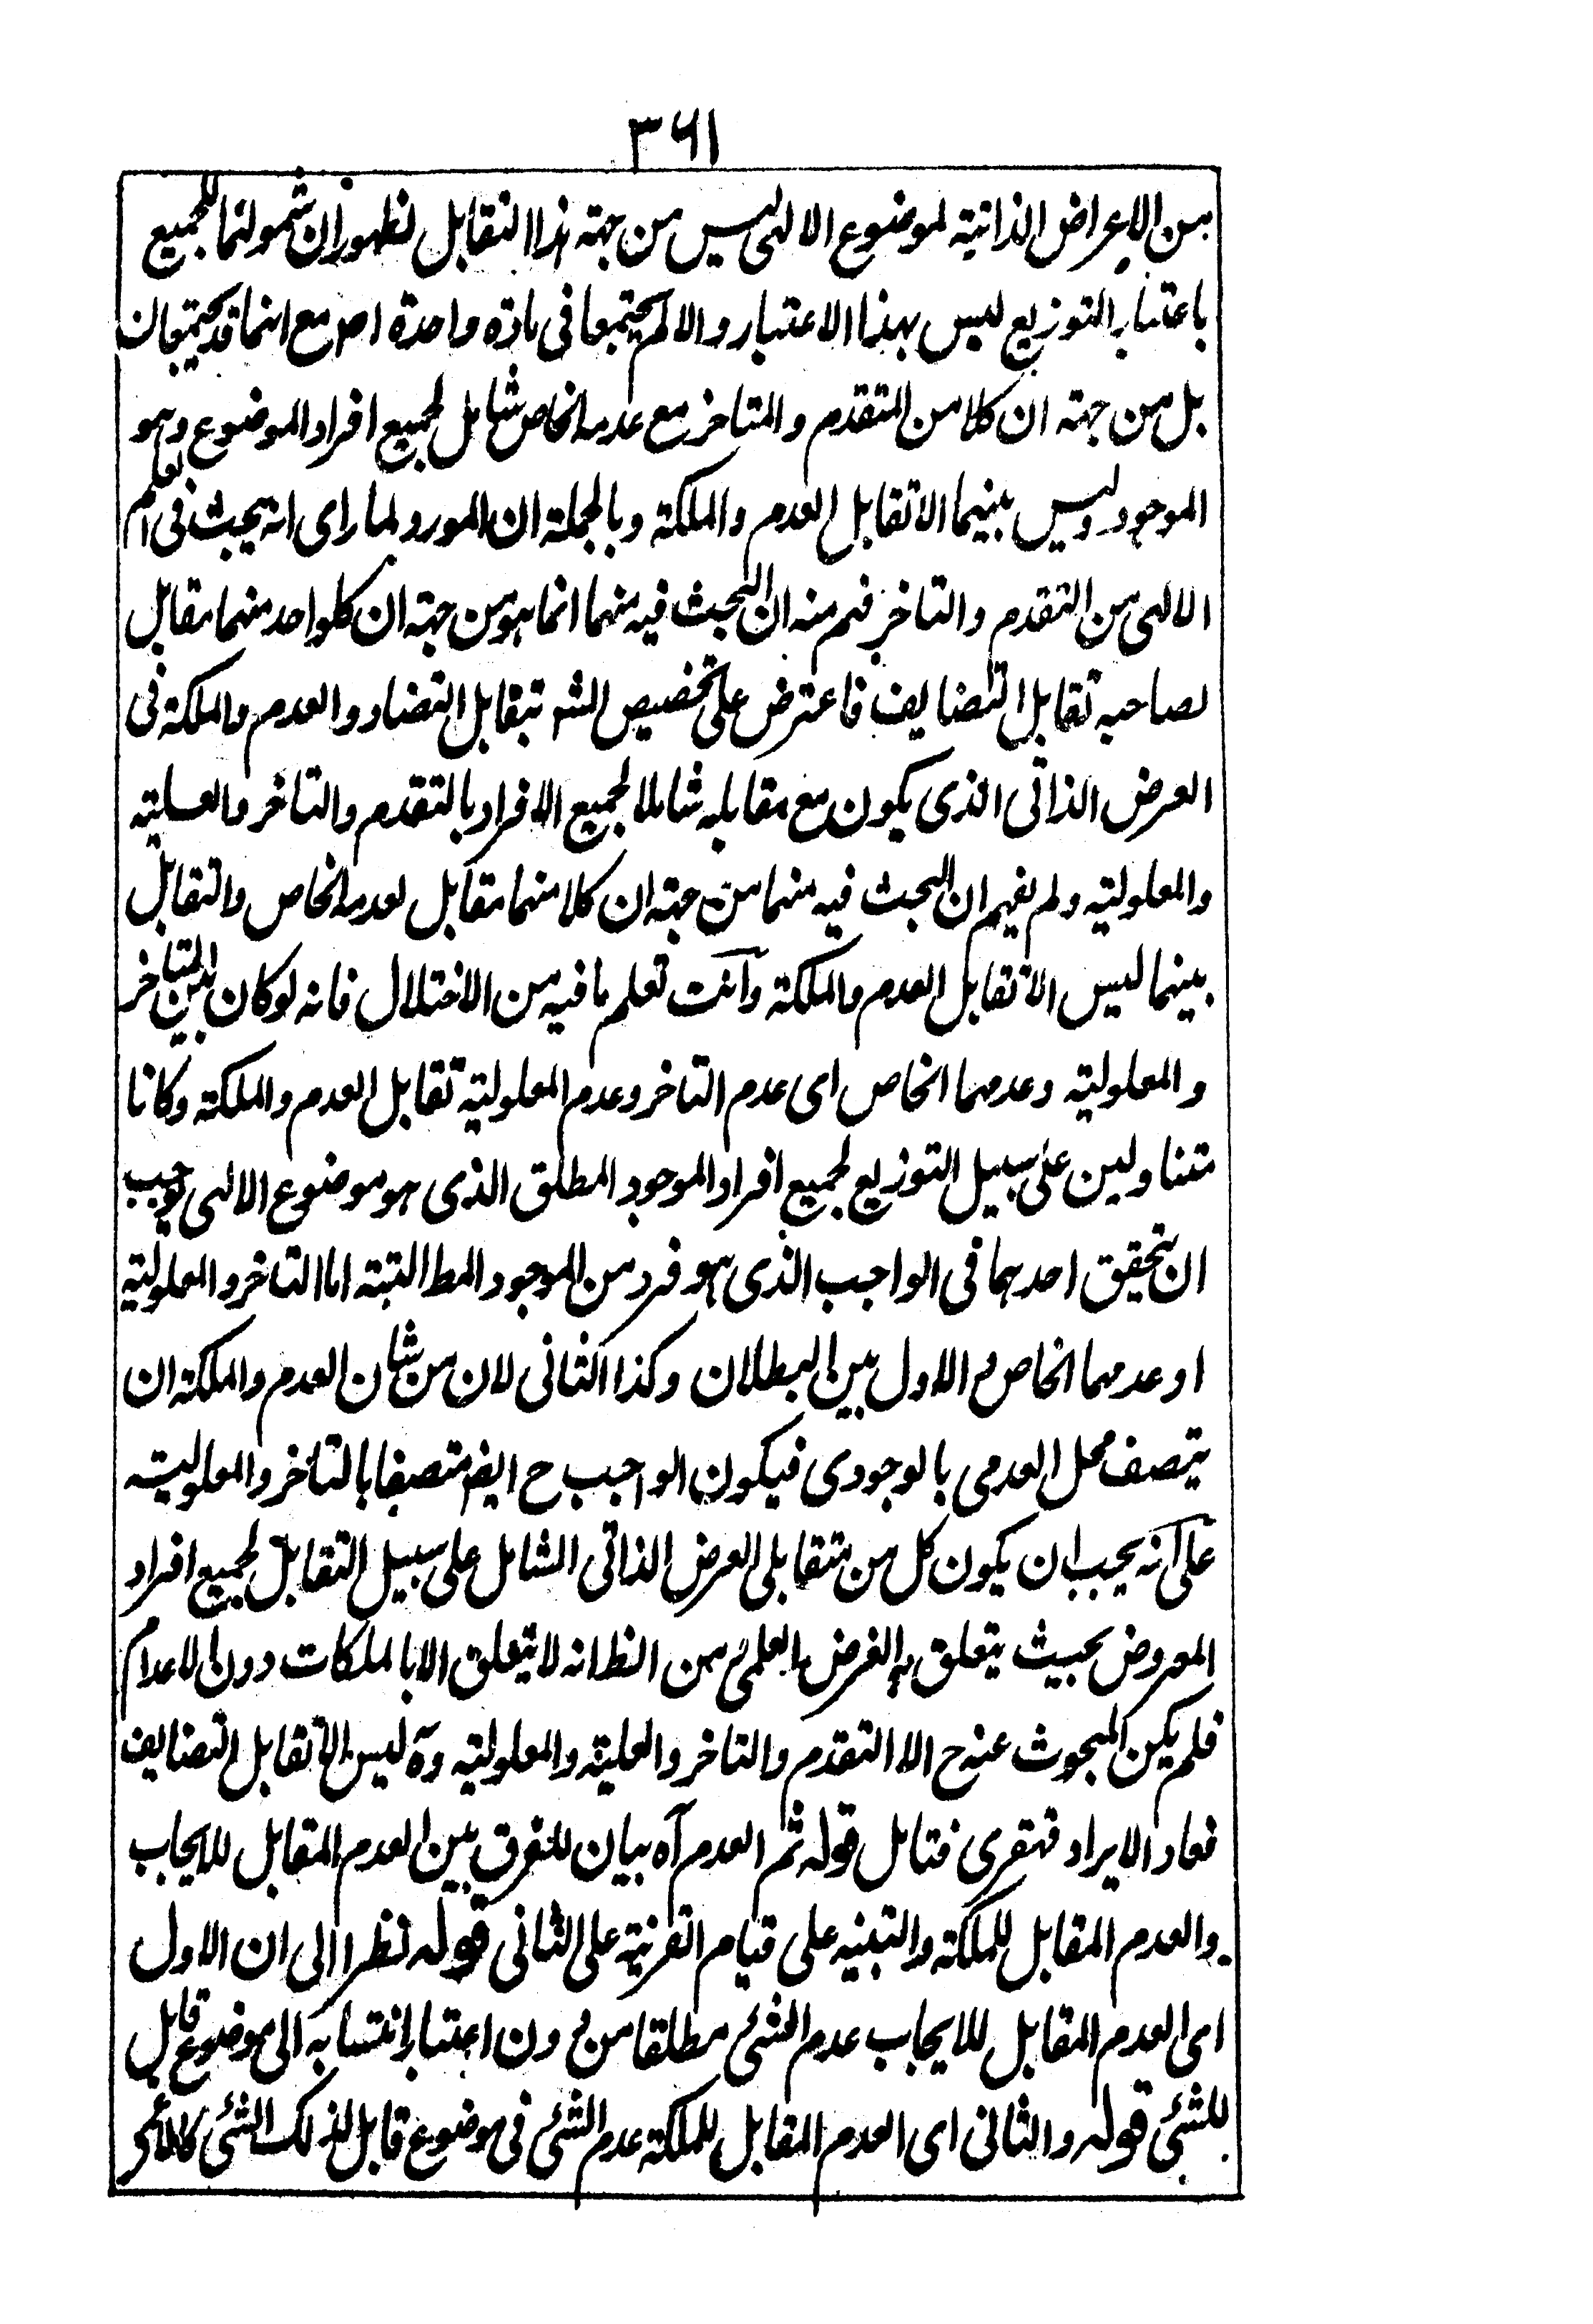 ٣٦١
من الاعراض الذاتية لموضوع الالهى ليس من جهة هذا التقابل لظهور ان شمولهما للجميع
باعتبار التوزيع ليس بهذا الاعتبار والا لم يجتمعا فى مادة واحدة اصـ مع انهما قد يجتمعان
بل من جهة ان كلا من المتقدم والمتاخر مع عدمه الخاص شامل لجميع افراد الموضوع وهو
الموجود وليس بينهما الا تقابل العدم والملكة وبالجملة ان المورد لما راى انه يبحث فى العلم
الالهى من التقدم والتاخر فهم منه ان البحث فيه منهما انما هو من جهة ان كلواحد منهما مقابل
لصاحبه تقابل التضايف فاعترض على تخصيص الشـ بتقابل التضاد والعدم والملكة فى
العرض الذاتى الذى يكون مع مقابله شاملا لجميع الافراد بالتقدم والتاخر والعلية
والمعلولية ولم يفهم ان البحث فيه منهما من جهة ان كلا منهما مقابل لعدمه الخاص والتقابل
بينهما ليس الا تقابل العدم والملكة وانت تعلم ما فيه من الاختلال فانه لو كان بين التاخر
والمعلولية وعدمهما الخاص اى عدم التاخر وعدم المعلولية تقابل العدم والملكة وكانا
متناولين على سبيل التوزيع لجميع افراد الموجود المطلق الذى هو موضوع الالهى لوجب
ان يتحقق احدهما فى الواجب الذى هو فرد من الموجود المط البتة اما التاخر والمعلولية
او عدمهما الخاص والاول بين البطلان وكذا الثانى لان من شان العدم والملكة ان
يتصف محل العدمى بالوجودى فيكون الواجب ح ايضـ متصفا بالتاخر والمعلولية
على انه يجب ان يكون كل من متقابلى العرض الذاتى الشامل على سبيل التقابل لجميع افراد
المعروض بحيث يتعلق به الغرض العلمى ومن الظ انه لا يتعلق الا بالملكات دون الاعدام
فلم يكن المبحوث عنه ح الا التقدم والتاخر والعلية والمعلولية وآه ليس الا تقابل التضايف
فعاد الايراد قهقرى فتامل قوله ثم العدم آه بيان للفرق بين العدم المقابل للايجاب
والعدم المقابل للملكة والتنبيه على قيام القرينة على الثانى قوله نظرا الى ان الاول
اى العدم المقابل للايجاب عدم الشئ مطلقا من دون اعتبار انتسابه الى موضوع قابل
للشئ قوله والثانى اى العدم المقابل للملكة عدم الشئ فى موضوع قابل لذلك الشئ